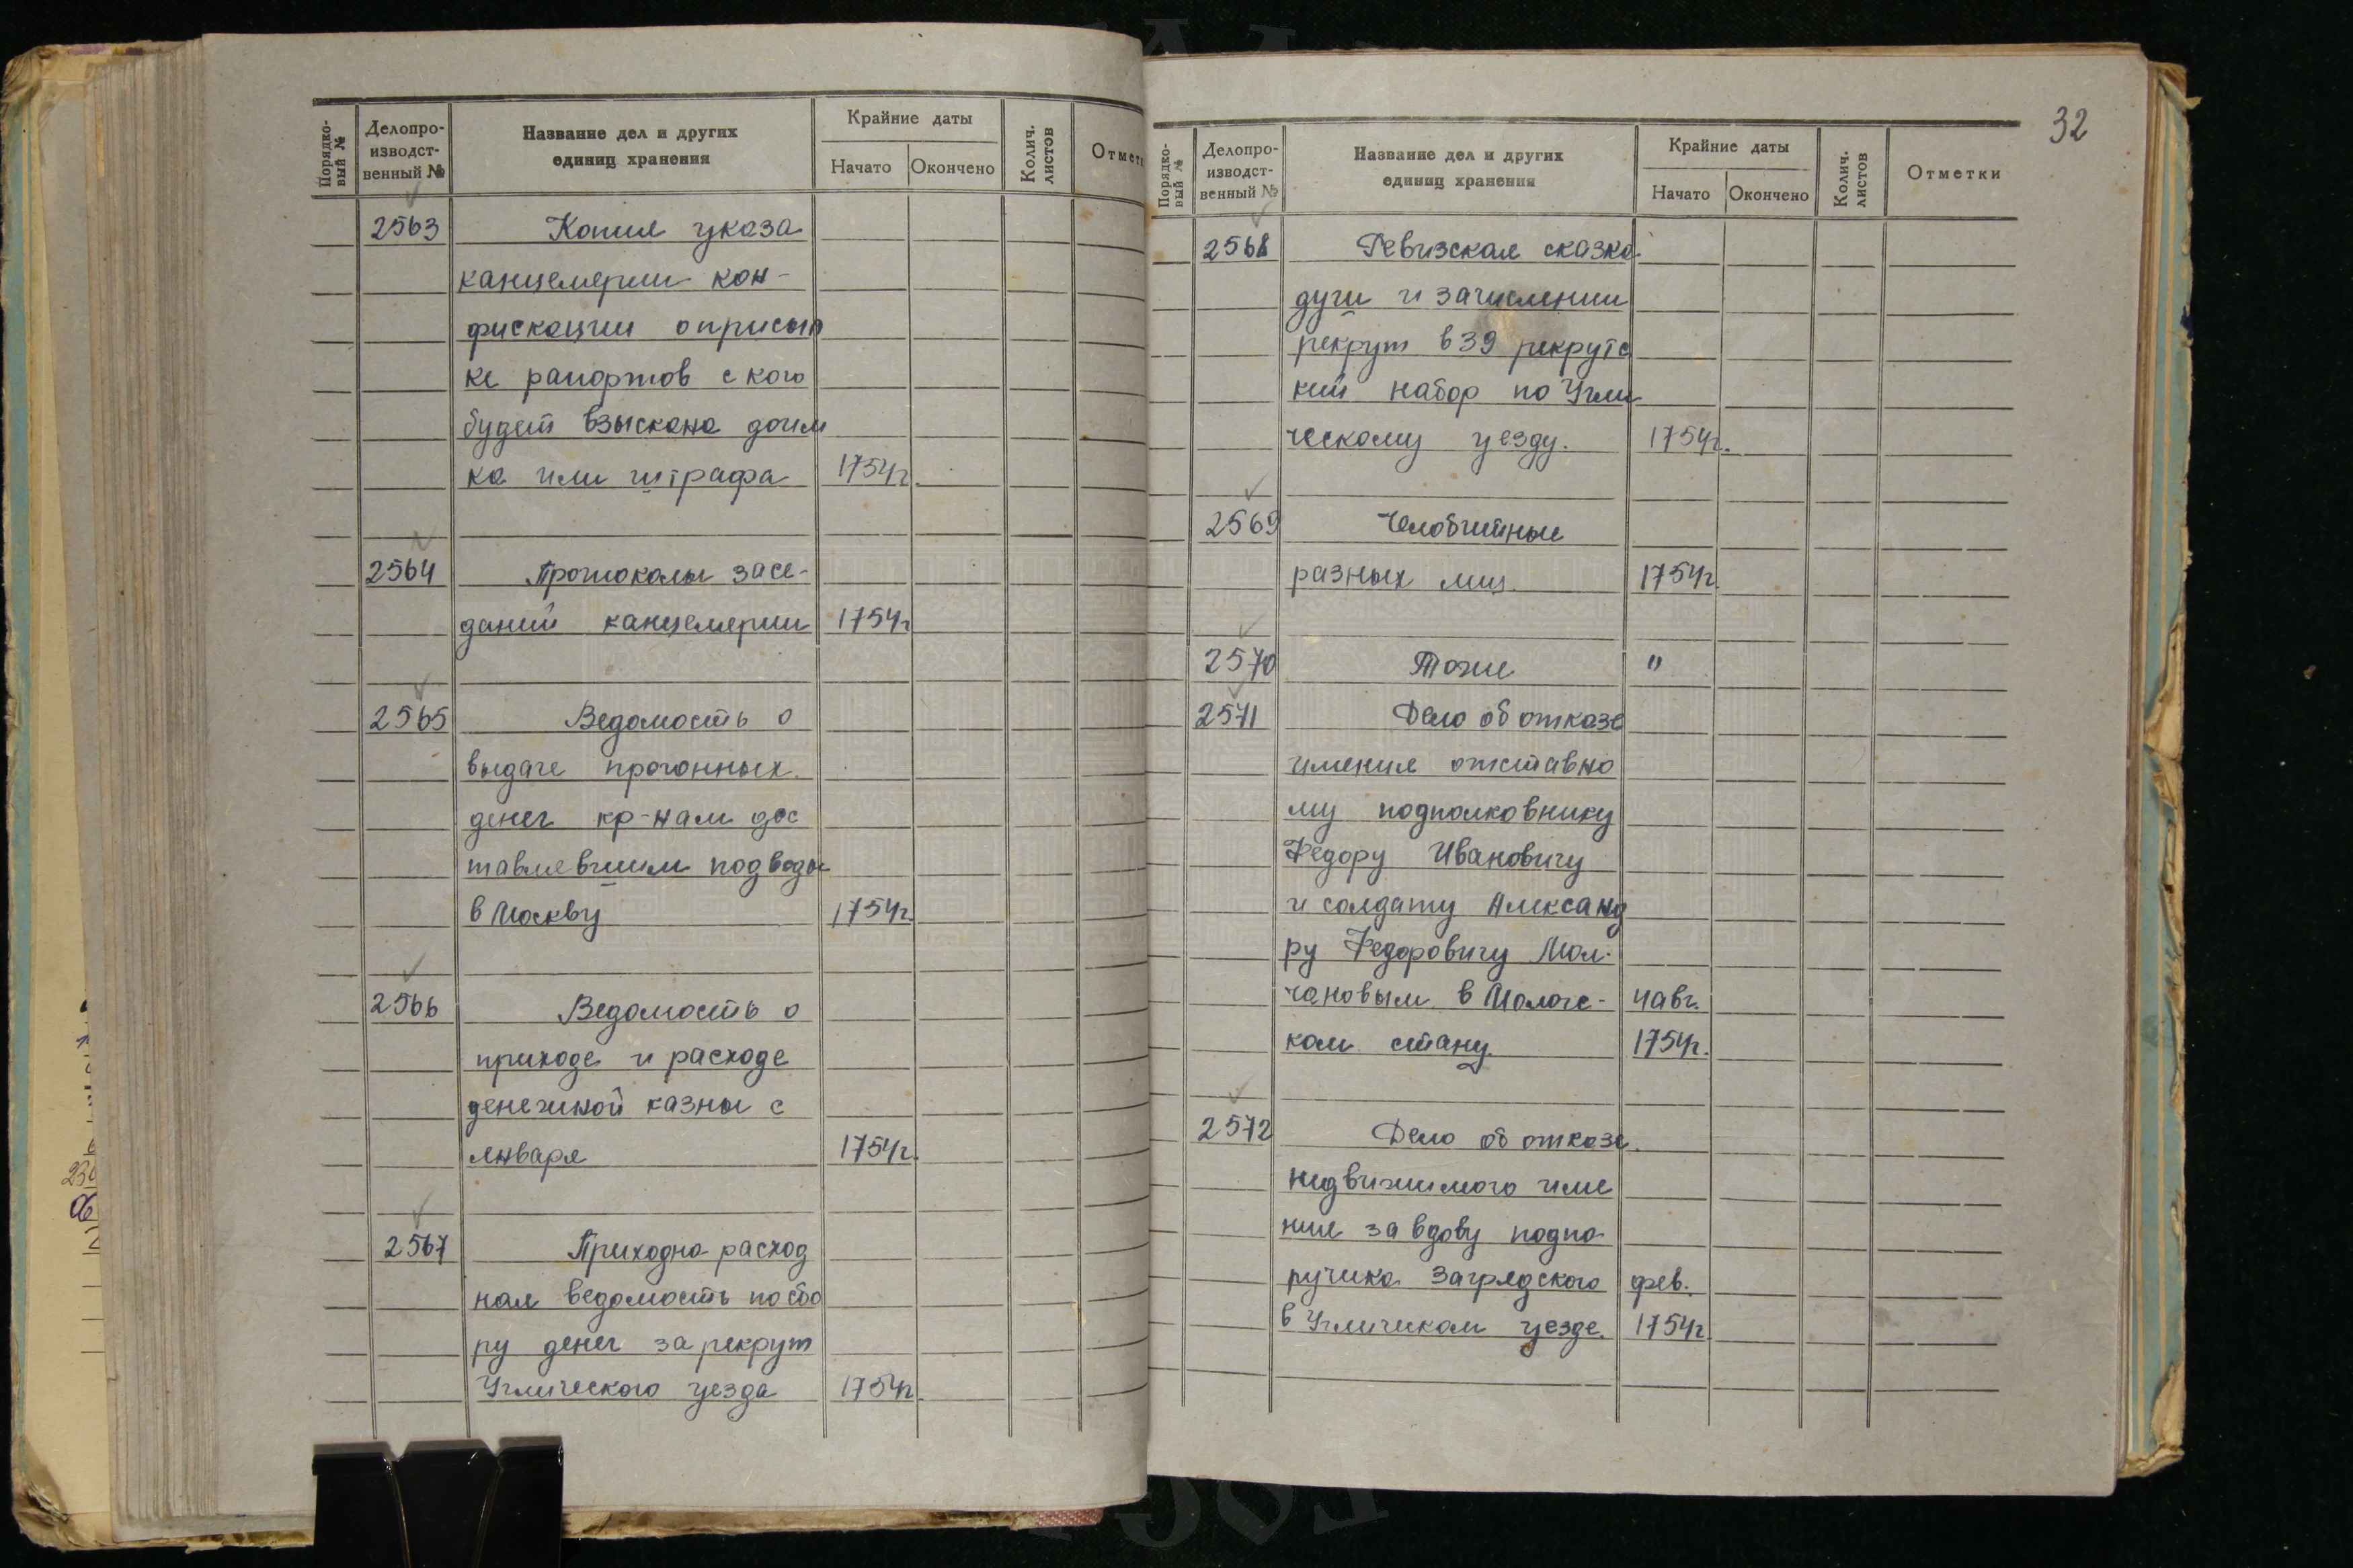 Порядко-
вый №
Делопро-
изводст-
венный №
Название дел и других
единиц хранения
Крайние даты
Начато
Окончено
Колич.
листов
Отметк
2563 Копия указа
канцелярии кон-
фискации о присып
ке рапортов с кого
будет взыскана доим
ка или штрафа 1754г
2564 Протоколы засе-
даний канцелярии 1754г
2565 Ведомость о
выдаче прогонных
денег кр-нам дос
тавлявшим подводы
в Москву 1754г.
2566 Ведомость о
приходе и расходе
денежной казны с
января 1754г.
2567 Приходно расход
ная ведомость по сбо
ру денег за рекрут
Угличского уезда 1754г
32
Порядко-
вый №
Делопро-
изводст-
венный №
Название дел и других
единиц хранения
Крайние даты
Начато
Окончено
Колич.
листов
Отметки
2568 Ревизская сказка
и зачислении
рекрут в 39 рекрутс
кий набор по Угли
ческому уезду. 1754г.
2569 Челобитные
разных лиц. 1754г.
2570 Тоже "
2571 Дело об отказе
имения отставно
му подполковнику
Федору Ивановичу
и солдату Александ
ру Федоровичу Мол-
чановым в Моложс-
ком стану. 1754г.
2572 Дело об отказе
недвижимого име
ние за вдову подпо
ручика Загрядского фев.
в Угличском уезде. 1754г